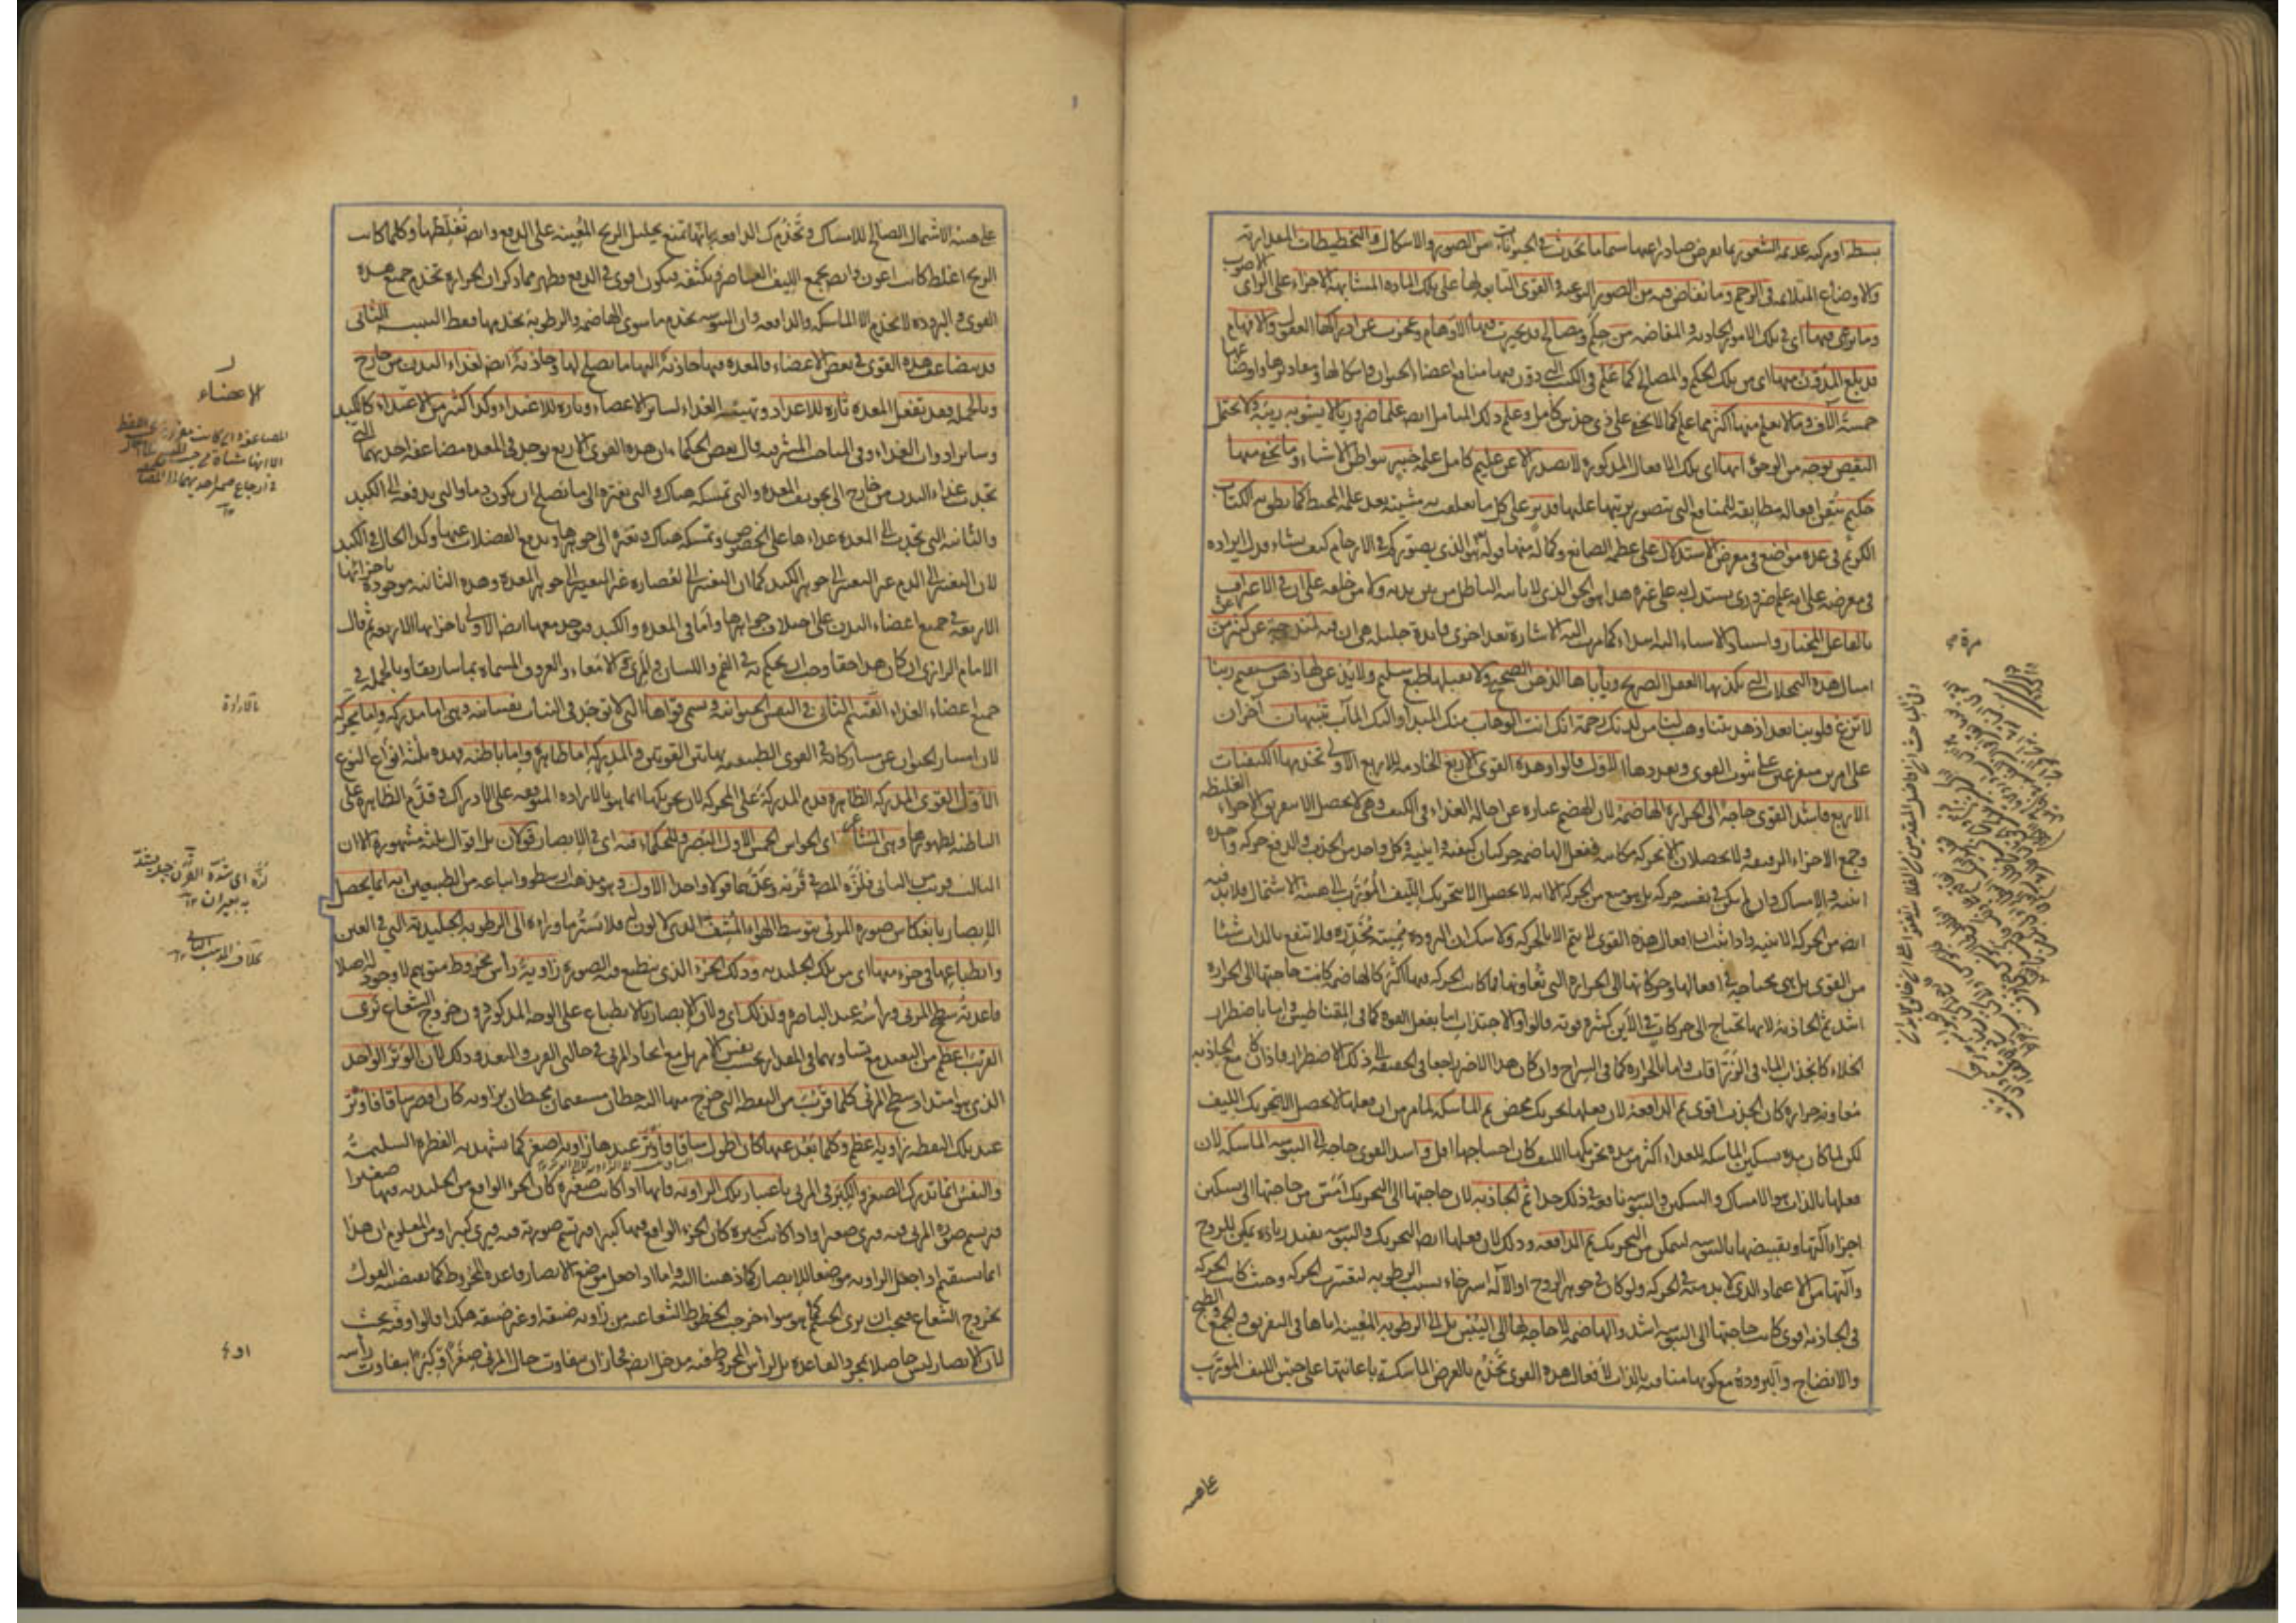 بسيطة او مركبة عديمة الشعور بما يعرض صادرا عنها سيما ما يحدث في الحيوانات من الصور والاشكال والتخطيطات المقدارية
والاوضاع المتلائمة في الرحم وما يفاض فيه من الصور النوعية والقوى التابعة لها على تلك المادة المتشابهة الاجزاء على الراى الاصوب
وما يرعى فيها اى في تلك الامور الحادثة والمفاضة من حكم ومصالح قد تحيرت فيها الاوهام وعجزت عن ادراكها العقول والافهام
قد بلغ المدون منها اى من تلك الحكم والمصالح كما علم في الكتب التي دون فيها منافع اعضاء الحيوان واشكالها ومقاديرها واوضاعها
خمسة آلاف وما لا يعلم منها اكثر مما علم كما لا يخفى على ذي حدس كامل وعلم ذلك المتأمل ايضا علما ضروريا لا يشوبه ريبة ولا يحتمل
النقيض بوجه من الوجوه انها اى تلك الافعال المذكورة لا تصدر الا عن عليم كامل علمه خبير ببواطن الاشياء وما يخفى منها
حكيم يتقن افعاله مطابقة للمنافع التي يتصور ترتبها عليها قدير على كل ما تعلقت به مشيئته بعد علمه المحيط كما نطق به الكتاب
الكريم في عدة مواضع في معرض الاستدلال على عظمة الصانع وكماله منها قوله هو الذي يصوركم في الارحام كيف يشاء فدل ايراده
في معرضه على انه علم ضروري يستدل به على غيره هذا هو الحق الذي لا يأتيه الباطل من بين يديه ولا من خلفه على ان في الاعتراف
بالفاعل المختار واستناد الاشياء اليه ابتداء كما مرت اليه الاشارة مرة بعد اخرى فائدة جليلة هي ان فيه لمندوحة عن كثير من
امثال هذه التمحلات التي يكذبها العقل الصريح ويأباها الذهن الصحيح ولا يقبلها طبع سليم ولا يذعن لها ذهن مستقيم ربنا
لا تزغ قلوبنا بعد اذ هديتنا وهب لنا من لدنك رحمة انك انت الوهاب منك المبدأ واليك المآب تنبيهان آخران
على امرين متفرعين على ثبوت القوى وتعددها الاول قالوا وهذه القوى الاربع الخادمة للاربع الاولى تخدمها الكيفيات
الاربع فاشد القوى حاجة الى الحرارة الهاضمة لان الهضم عبارة عن احالة الغذاء في الكيف وهي لا تحصل الا بتفريق الاجزاء الغليظة
وجمع الاجزاء الرقيقة ولا يحصلان الا بحركة مكانية ففعل الهاضمة حركتان كيفية واينية وكل واحد من الجذب والدفع حركة واحدة
اينية والامساك وان لم يكن في نفسه حركة بل هو منع من الحركة الا انه لا يحصل الا بتحريك الليف المؤرب الى هيئة الاشتمال فلا بد فيه
ايضا من الحركة الاينية واذا ثبت ان افعال هذه القوى لا يتم الا بالحركة ولا شك ان البرودة مميتة مخدرة فلا تنفع بالذات شيئا
من القوى بل هي محتاجة في افعالها وحركاتها الى الحرارة التي تعاونها فما كانت الحركة فيها اكثر كالهاضمة كانت حاجتها الى الحرارة
اشد ثم الجاذبة لانها تحتاج الى حركات في الاين كثيرة قوية قالوا والاجتذاب اما بفعل القوة كما في المقناطيس واما باضطرار
الخلاء كانجذاب الماء في الزراقات واما بالحرارة كما في السراج وان كان هذا الاخير راجعا في الحقيقة الى ذلك الاضطرار فاذا كان مع الجاذبة
معاونة حرارة كان الجذب اقوى ثم الدافعة لان فعلها تحريك محض ثم الماسكة لما مر من ان فعلها لا يحصل الا بتحريك الليف
لكن لما كان مدة تسكين الماسكة للغذاء اكثر من مدة تحريكها الليف كان احتياجها اقل واشد القوى حاجة الى اليبوسة الماسكة لان
فعلها بالذات هو الامساك والتسكين واليبوسة نافعة في ذلك جدا ثم الجاذبة لان حاجتها الى التحريك امس من حاجتها الى تسكين
اجزاء آلتها وتقبيضها باليبوسة لتمكن من التحريك ثم الدافعة وذلك لان فعلها ايضا التحريك واليبوسة تفيد زيادة تمكن للروح
وآلتها من الاعتماد الذي لا بد منه في الحركة ولو كان في جوهر الروح او الآلة استرخاء بسبب الرطوبة لتعسرت الحركة وحيث كانت الحركة
في الجاذبة اقوى كانت حاجتها الى اليبوسة اشد والهاضمة لا حاجة لها الى اليبس بل الى الرطوبة المعينة اياها في التفريق والجمع والطبخ
والانضاج والبرودة مع كونها منافية بالذات لافعال هذه القوى تخدم بالعرض الماسكة باعانتها على حبس الليف المورب
على هيئة
على هيئة الاشتمال الصالح للامساك وتخدم الدافعة بانها تمنع تحليل الريح المعينة على الدفع وايضا تغلظها وكلما كانت
الريح اغلظ كانت اعون وايضا تجمع الليف العاصر وتكثفه فيكون اقوى في الدفع وظهر مما ذكر ان الحرارة تخدم جميع هذه
القوى والبرودة لا تخدم الا الماسكة والدافعة وان اليبوسة تخدم ما سوى الهاضمة والرطوبة تخدمها فقط التنبيه الثاني
قد تضاعف هذه القوى في بعض الاعضاء فالمعدة فيها جاذبة اليها ما يصلح لها وجاذبة ايضا لغذاء البدن من خارج
وبالجملة فقد تفعل المعدة تارة للاعداد وتهيئة الغذاء لسائر الاعضاء وتارة للاغتذاء وكذا كثير من الاعضاء كالكبد
وسائر ادوات الغذاء وفي المباحث المشرقية قال بعض الحكماء ان هذه القوى الاربع توجد في المعدة مضاعفة احديهما التي
تجذب غذاء البدن من خارج الى تجويف المعدة والتي تمسكه هناك والتي تغيره الى ما يصلح ان يكون دما والتي تدفعه الى الكبد
والثانية التي تجذب الى المعدة غذاءها على الخصوص وتمسكه هناك وتغيره الى جوهرها وتدفع الفضلات عنها وكذا الحال في الكبد
لان التغيير الى الدم غير التغيير الى جوهر الكبد كما ان التغيير الى العصارة غير التغيير الى جوهر المعدة وهذه الثانية موجودة باجزائها
الاربعة في جميع اعضاء البدن على اختلاف جواهرها واما في المعدة والكبد فتوجد معها ايضا الاولى باجزائها الاربعة ثم قال
الامام الرازي ان كان هذا حقا وجب ان يحكم به في الفم واللسان والمرى والامعاء والعروق المسماة بماساريقا وبالجملة في
جميع اعضاء الغذاء القسم الثاني في النفس الحيوانية وتسمى قواها التي لا توجد في النبات نفسانية وهي اما مدركة واما محركة
لان امتياز الحيوان عن مشاركاته في القوى الطبيعية بهاتين القوتين والمدركة اما ظاهرة واما باطنة فهذه ثلثة انواع النوع
الاول القوى المدركة الظاهرة قدم المدركة على المحركة لان تحريكها انما هو بالارادة المتوقفة على الادراك وقدم الظاهرة على
الباطنة لظهورها وهي المشاعر اى الحواس الخمس الاول البصر وللحكماء فيه اى في الابصار قولان بل اقوال ثلثة مشهورة الا ان
الثالث قريب من الثاني فلزه المص في قرنه وعدهما قولا واحدا الاول وهو مذهب ارسطو واتباعه من الطبيعيين انه انما يحصل
الابصار بانعكاس صورة المرئي بتوسط الهواء المشف الذي لا لون له فلا يستر ما وراءه الى الرطوبة الجليدية التي في العين
وانطباعها في جزء منها اى من تلك الجليدية وذلك الجزء الذي ينطبع فيه الصورة زاوية رأس مخروط متوهم لا وجود له اصلا
قاعدته سطح المرئي ورأسه عند الباصرة ولذلك اى ولان الابصار بالانطباع على الوجه المذكور دون خروج الشعاع ترى
القريب اعظم من البعيد مع تساويهما في المقدار بحسب نفس الامر بل مع اتحاد المرئي في حالتي القرب والبعد وذلك لان الوتر الواحد
الذي هو امتداد سطح المرئي كلما قرب من النقطة التي خرج منها اليه خطان مستقيمان محيطان بزاوية كان اقصر ساقا فاوتر
عند تلك النقطة زاوية اعظم وكلما بعد عنها كان اطول ساقا فاوتر عندها زاوية اصغر كما تشهد به الفطرة السليمة
والنفس انما تدرك الصغر والكبر في المرئي باعتبار تلك الزاوية فانها اذا كانت صغيرة كان الجزء الواقع من الجليدية فيها صغيرا
فيرتسم صورة المرئي فيه فيرى صغيرا واذا كانت كبيرة كان الجزء الواقع فيها كبيرا فيرتسم صورته فيه فيرى كبيرا ومن المعلوم ان هذا
انما يستقيم اذا جعل الزاوية موضعا للابصار كما ذهبنا اليه واما اذا جعل موضع الابصار قاعدة المخروط كما يقتضيه القول
بخروج الشعاع فيجب ان يرى الجسم كما هو سواء خرجت الخطوط الشعاعية من زاوية ضيقة او غير ضيقة هكذا قالوا وفيه بحث
لان الابصار ليس حاصلا بمجرد القاعدة بل لرأس المخروط فيه مدخل ايضا فجاز ان يتفاوت حال المرئي صغرا وكبرا بتفاوت رأسه
الاعضاء
بالارادة
لزه اى شده